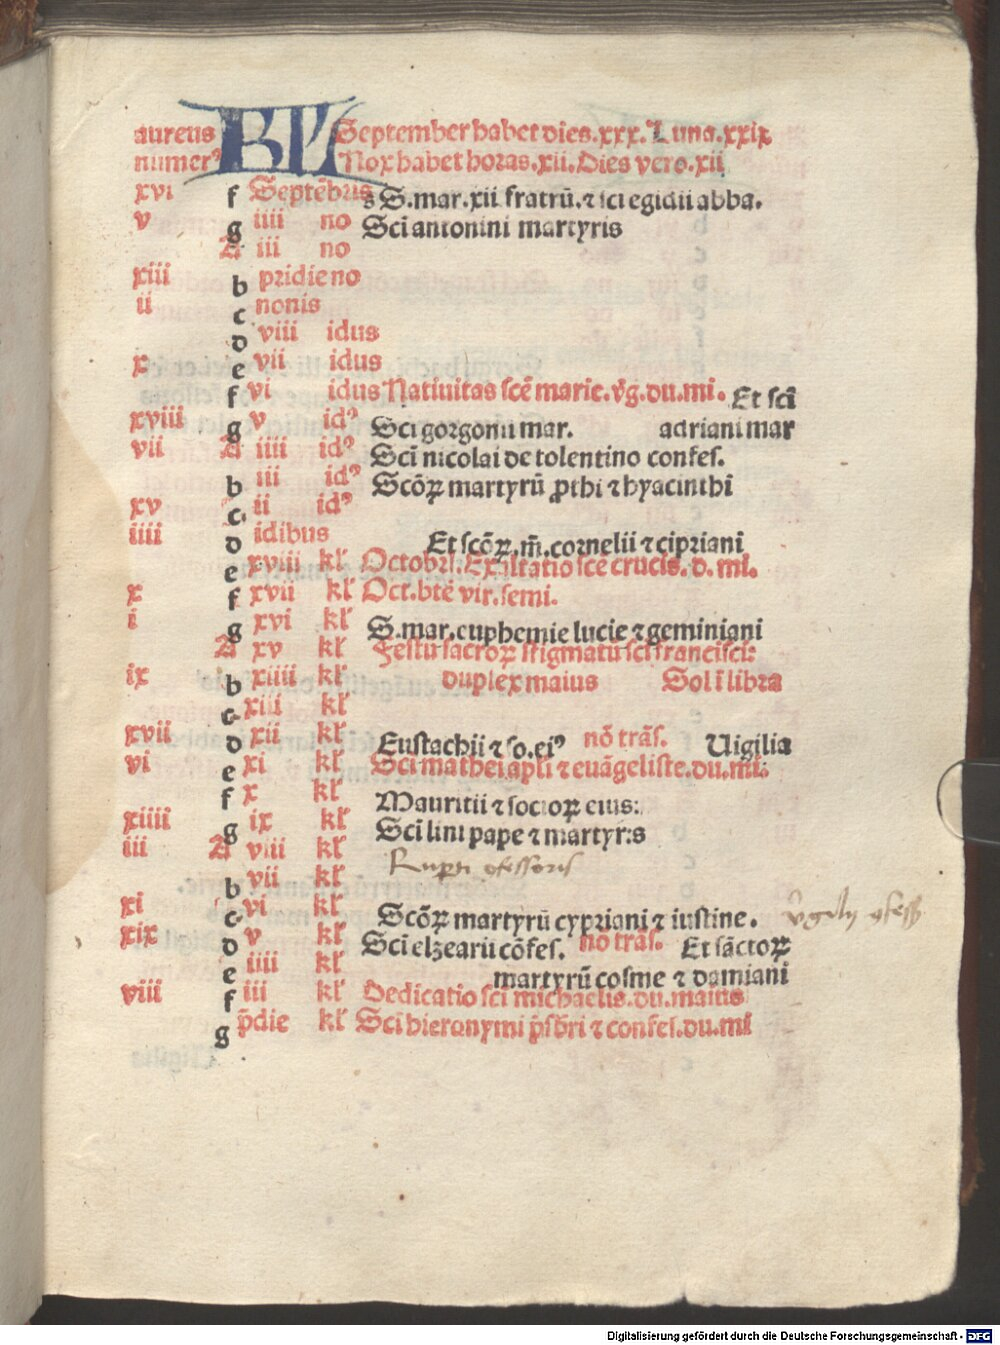 aureus KL September habet dies.xxx. Luna.xxix
numerꝰ Nox habet horas.xii. Dies vero.xii
xvi f Septēbris s S.mar.xii fratrū.⁊ sci egidii abba.
v g iiii no Scī antonini martyris
A iii no
xiii b pridie no
ii c nonis
d viii idus
x e vii idus
f vi idus Natiuitas scē marie.v̄g.du.mi. Et scī
xviii g v idꝰ Scī gorgonii mar. adriani mar
vii A iiii idꝰ Scī nicolai de tolentino confes.
b iii idꝰ Scōꝝ martyrū ꝓthi ⁊ hyacinthi
xv c ii idꝰ
iiii d idibus Et scōꝝ.m̄.cornelii ⁊ cipriani
e xviii kl' Octobris. Exaltatio scē crucis. d. mi.
x f xvii kl' Oct.btē vir.semi.
i g xvi kl' S.mar.euphemie lucie ⁊ geminiani
A xv kl' Festū sacroꝝ stigmatū scī francisci:
ix b xiiii kl' duplex maius Sol ī libra
c xiii kl'
xvii d xii kl' Eustachii ⁊ so.eiꝰ nō trās. Uigilia
vi e xi kl' Scī mathei apli ⁊ euāgeliste.du.mi:
f x kl' Mauritii ⁊ socioꝝ eius:
xiiii g ix kl' Scī lini pape ⁊ martyris
iii A viii kl' Ruperti ɔfessoris
b vii kl'
xi c vi kl' Scōꝝ martyrū cypriani ⁊ iustine. v̄gilij ɔfess
xix d v kl' Scī elzearii cōfes. nō trās. Et sāctoꝝ
e iiii kl' martyrū cosme ⁊ damiani
viii f iii kl' Dedicatio scī michaelis.du.maius
g p̄die kl' Scī hieronymi p̄sbri ⁊ confes.du.mi
Digitalisierung gefördert durch die Deutsche Forschungsgemeinschaft - DFG